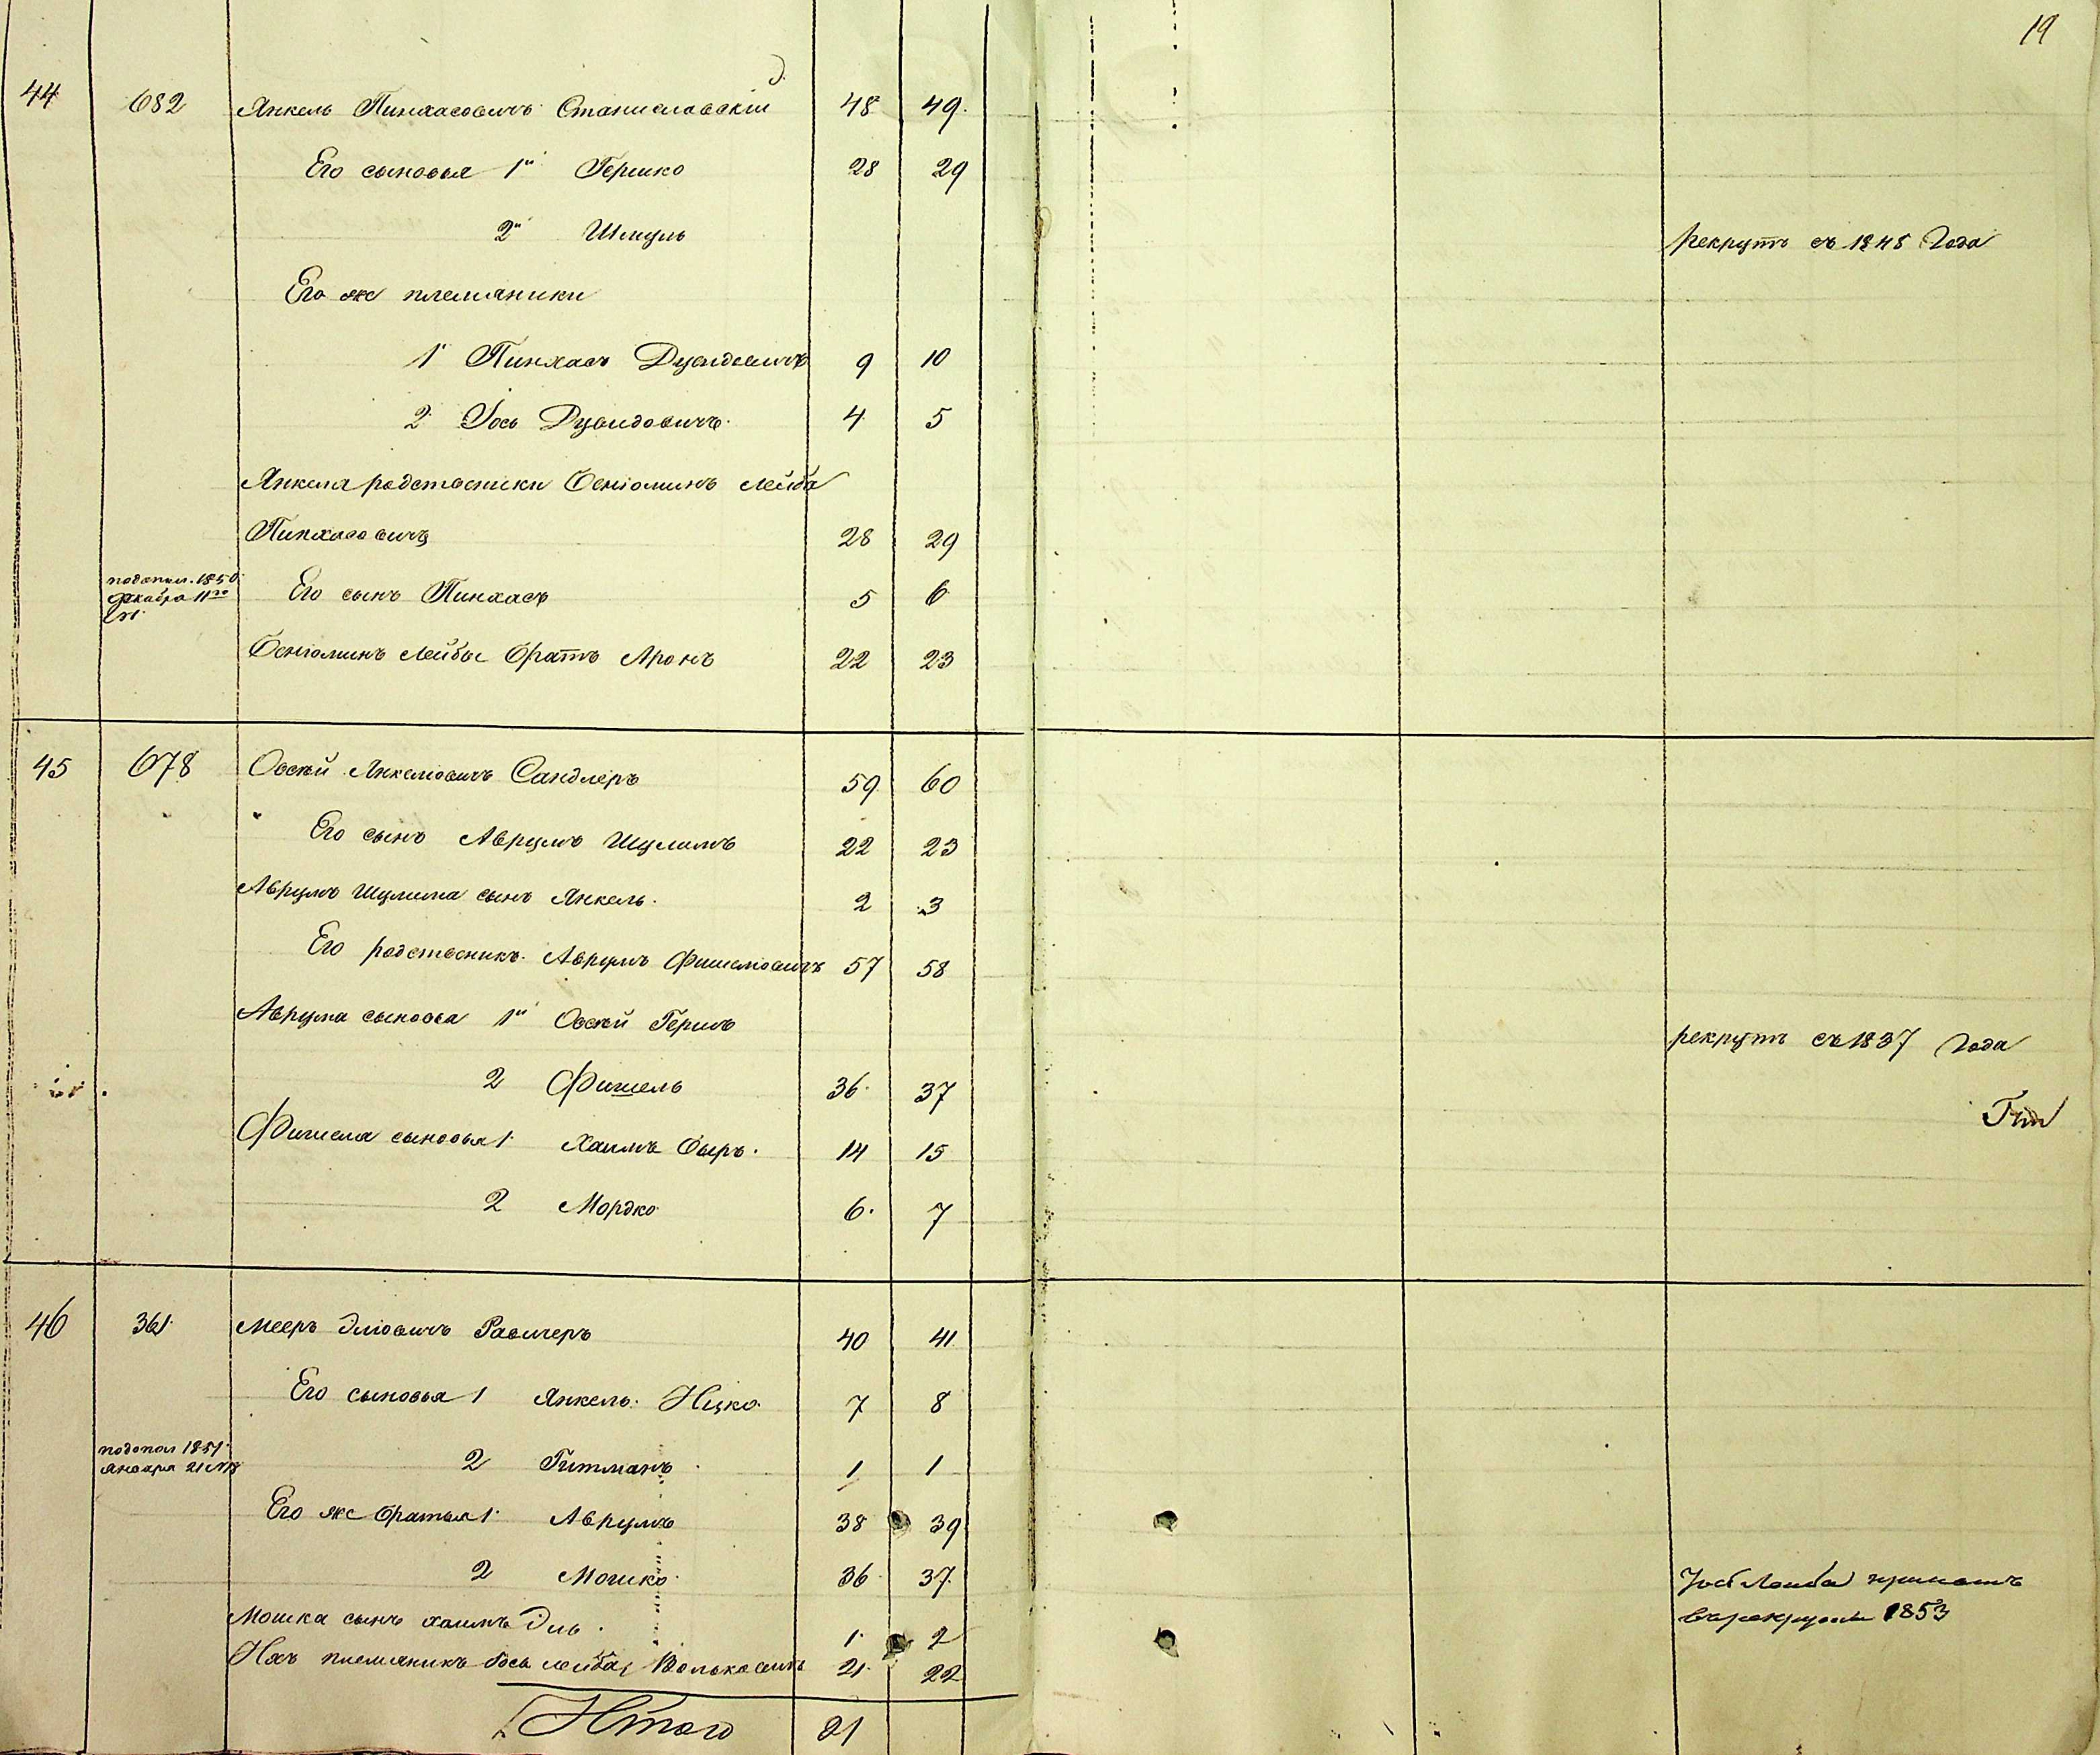 19
44 682 Янкель Пинхасовичъ Станиславскій 48 49.
Его сыновья 1й Гершко 28 29
2й Шмуль рекрутъ съ 1848 Года
Его же племяники
1 Пинхасъ Дувидовичъ 9 10
2 Іось Дувидовичъ. 4 5
Янкеля родственики Беніоминъ Лейба
Пинхасовичъ 28 29
подопол. 1850
декабря 11го
Его сынъ Пинхасъ 5 6
Беніоминъ Лейбы братъ Аронъ 22 23
45 678 Овсѣй Янкеловичъ Сандлеръ 59 60
Его сынъ Аврумъ Шулимъ 22 23
Аврумъ Шулима сынъ Янкель. 2 3
Его родственикъ Аврумъ Фишелювичъ 57 58
Аврума сыновья 1й Овсѣй Гершъ рекрутъ съ 1837 Года
2 Фишель 36 37
Фишеля сыновья 1 Хаимъ Беръ. 14 15
2 Мордко 6. 7
46 361 Мееръ Эліовичъ Равичеръ 40 41
Его сыновья 1 Янкель Ицко 7 8
подопол 1851
января 21
2 Гитманъ 1 1
Его же братья 1 Аврумъ 38 39
2 Мошко 36 37.
Мошка сынъ Хаимъ Эль. 1 2
Ихъ племяникъ Іось Лейба Вольковичъ 21 22
Іось Лейба принятъ
въ рекруты 1853
Итого 21